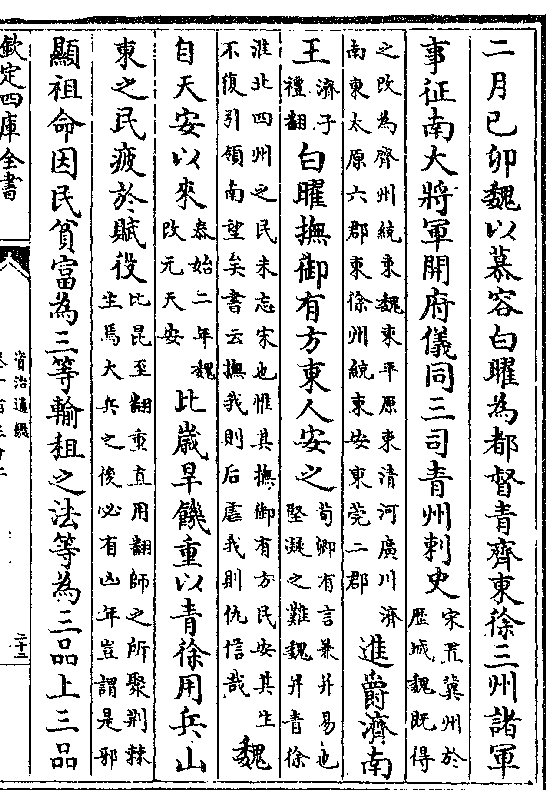 二月己卯魏以慕容白曜為都督青齊東徐三州諸軍
事征南大將軍開府儀同三司青州刺史
宋荒冀州於
歷城魏既得
之改為齊州統東魏東平原東清河廣川濟
南東太原六郡東徐州統東安東莞二郡
進爵濟南
王
濟子
禮翻
白曜撫御有方東人安之
荀卿有言兼并易也
堅凝之難魏并青徐
淮北四州之民未忘宋也惟其撫御有方民安其生
不復引領南望矣書云撫我則后虐我則仇信哉
魏
自天安以來
泰始二年魏
改元天安
比歲旱饑重以青徐用兵山
東之民疲於賦役
比毘至翻重直用翻師之所聚荆棘
生焉大兵之後必有凶年豈謂是邪
顯祖命因民貧富為三等輸租之法等為三品上三品
欽定四庫全書
資治通鑑
二十三